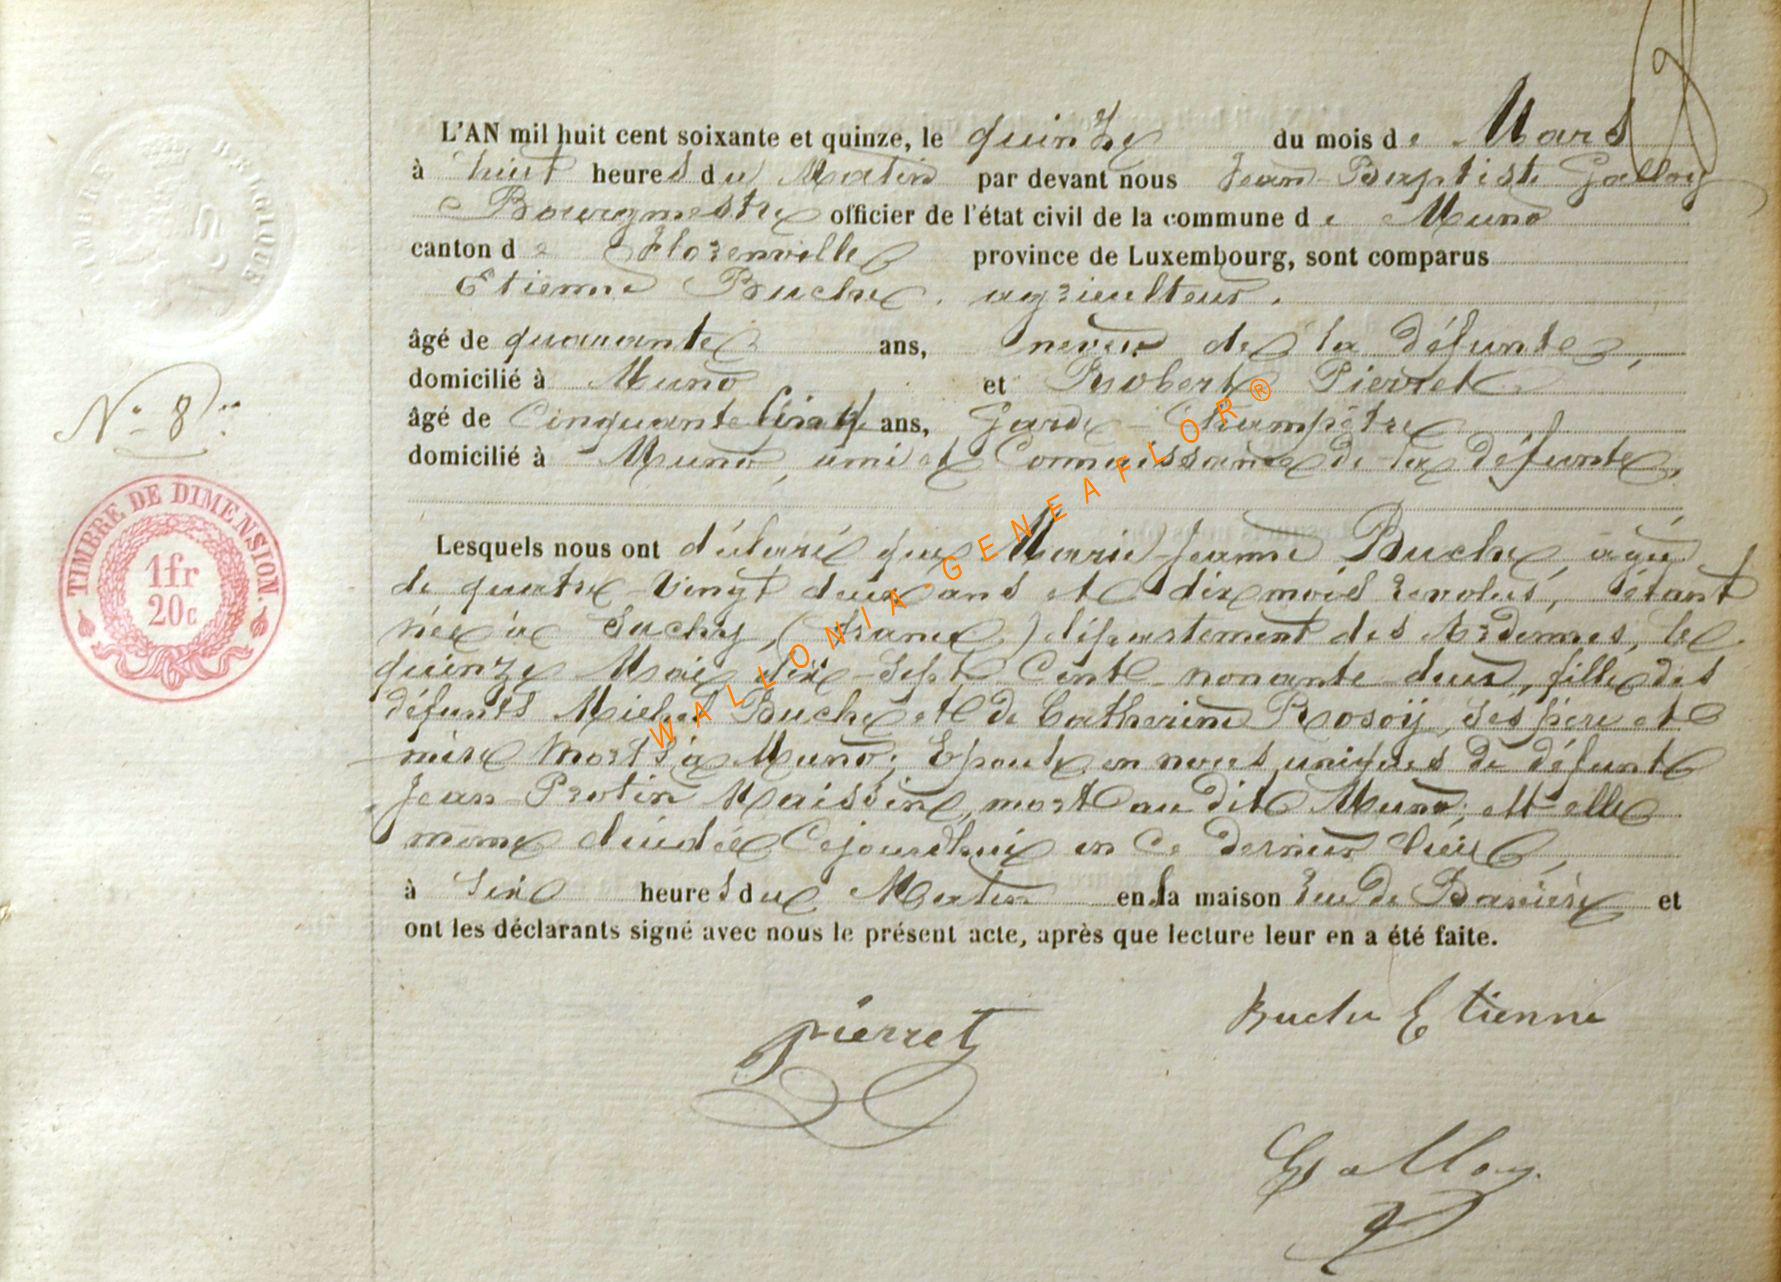 L'AN mil huit cent soixante et quinze, le quinze du mois de Mars
à huit heures du Matin par devant nous Jean-Baptiste Galloy
Bourgmestre officier de l'état civil de la commune de Muno
canton de Florenville province de Luxembourg, sont comparus
Etienne Buche, agriculteur,
âgé de quarante ans, neveu de la défunte,
domicilié à Muno et Robert Pierret
âgé de Cinquante cinq ans, Garde-Champêtre
domicilié à Muno, ami et Connaissance de la défunte,
Lesquels nous ont déclaré que Marie-Jeanne Buche, agée
de quatre-Vingt deux ans et dix mois révolus, étant
née à Sachy, (France) département des Ardennes, le
quinze Mai dix-Sept Cent-nonante-deux, fille des
défunts Michel Buche et de Catherine Rosoÿ, ses père et
mère morts à Muno; Epouse en noces uniques de défunt
Jean-Protin Maissin, mort au dit Muno; et elle
même décédée Cejourd'hui en Ce dernier lieu,
à Six heures du Matin en la maison rue de Barrière et
ont les déclarants signé avec nous le présent acte, après que lecture leur en a été faite.
Pierret
Buche Etienne
Galloy
N° 8
TIMBRE DE DIMENSION
1fr
20c
TIMBRE BELGIQUE
WALLONIA-GENEAFLOR®